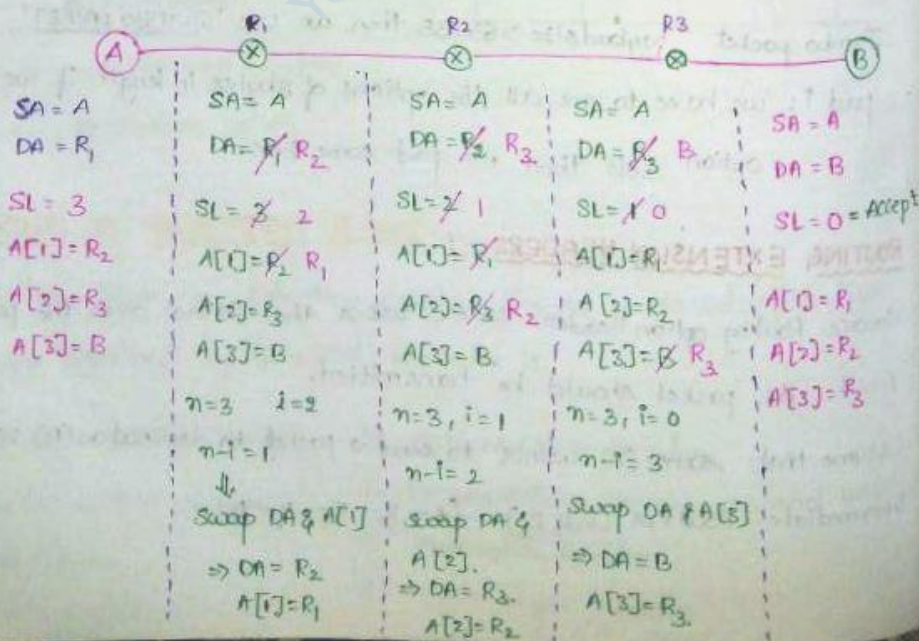 R1 R2 R3
A B
SA = A
DA = R1
SL = 3
A[1] = R2
A[2] = R3
A[3] = B
SA = A
DA = R1 R2
SL = 3 2
A[1] = R2 R1
A[2] = R3
A[3] = B
n=3 i=2
n-i=1
⇓
Swap DA & A[1]
⇒ DA = R2
A[1] = R1
SA = A
DA = R2 R3
SL = 2 1
A[1] = R1
A[2] = R3 R2
A[3] = B
n=3, i=1
n-i=2
Swap DA &
A[2].
⇒ DA = R3.
A[2] = R2
SA = A
DA = R3 B
SL = 1 0
A[1] = R1
A[2] = R2
A[3] = B R3
n=3, i=0
n-i=3
Swap DA & A[3]
⇒ DA = B
A[3] = R3.
SA = A
DA = B
SL = 0 = Accept
A[1] = R1
A[2] = R2
A[3] = R3